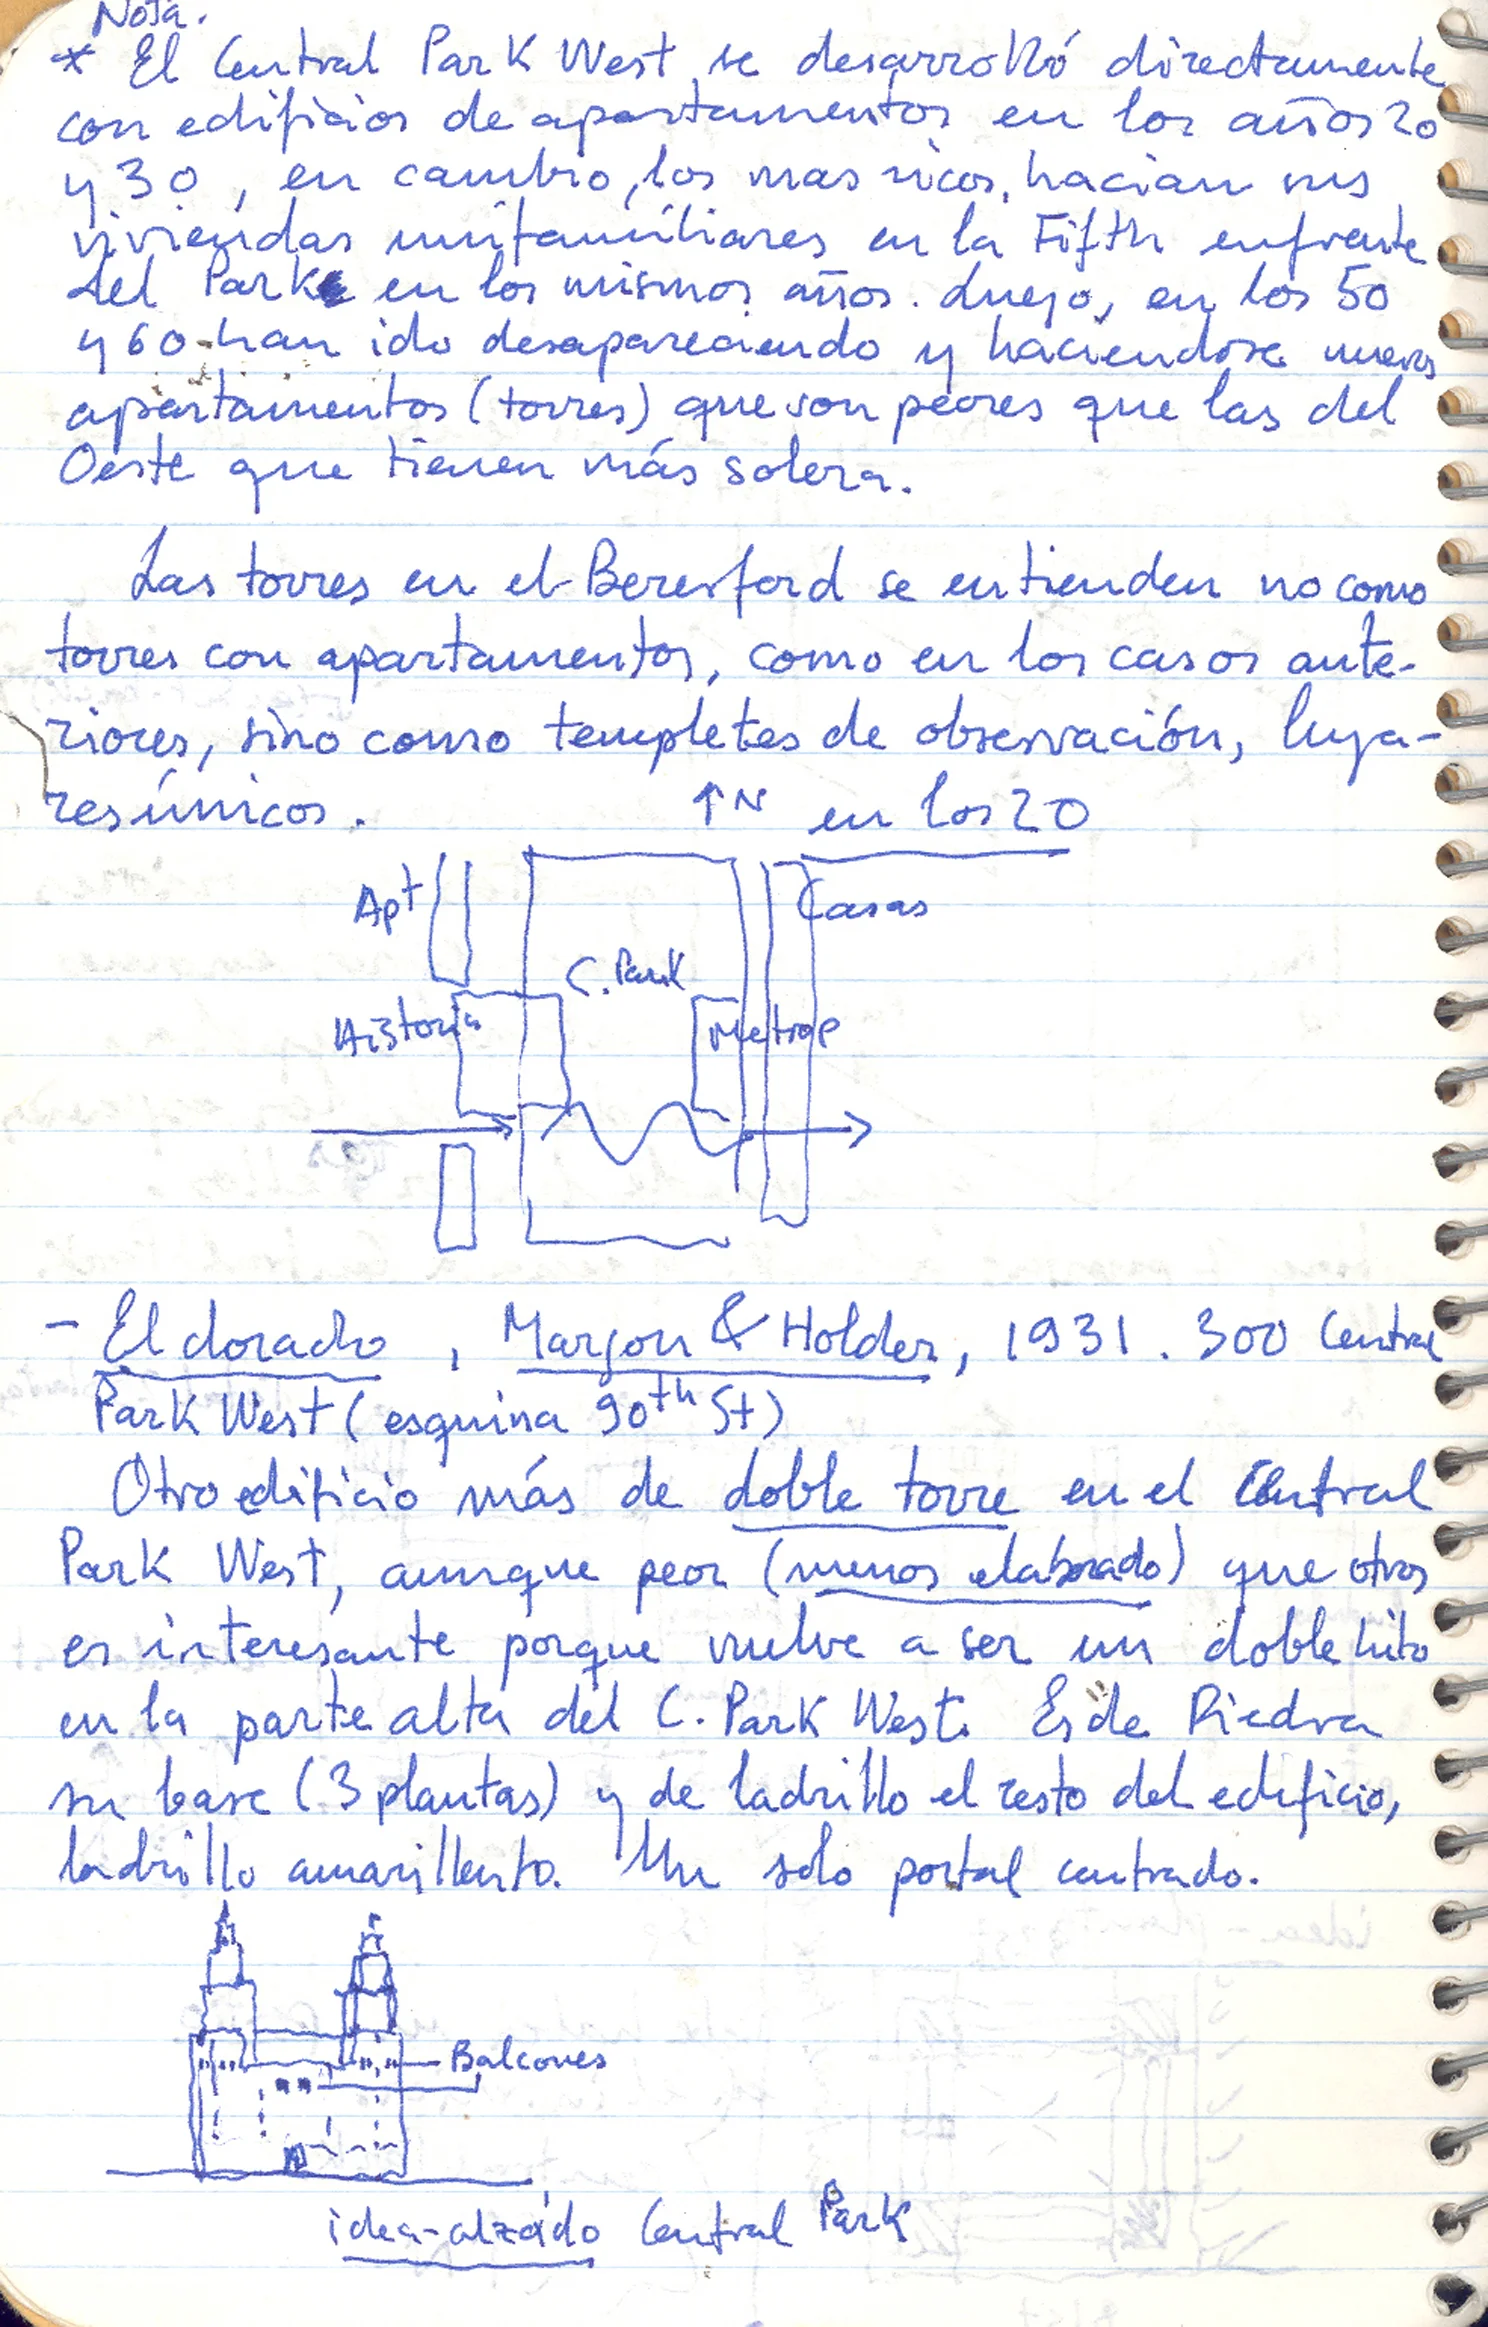 Nota.
* El Central Park West, se desarrolló directamente
con edificios de apartamentos en los años 20
y 30, en cambio, los mas ricos, hacian sus
viviendas unifamiliares en la Fifth enfrente
del Park en los mismos años. Luego, en los 50
y 60 han ido desapareciendo y haciendose nuevos
apartamentos (torres) que son peores que las del
Oeste que tienen más solera.
Las torres en el Beresford se entienden no como
torres con apartamentos, como en los casos ante-
riores, sino como templetes de observación, luga-
res únicos.
↑N en los 20
Apt
Casas
C. Park
Historia
Metrop
- El dorado, Margon & Holder, 1931. 300 Central
Park West (esquina 90th St)
Otro edificio más de doble torre en el Central
Park West, aunque peor (menos elaborado) que otros
es interesante porque vuelve a ser un doble hito
en la parte alta del C. Park West. Es de Piedra
su base (3 plantas) y de ladrillo el resto del edificio,
ladrillo amarillento. Un solo portal centrado.
Balcones
idea-alzado Central Park